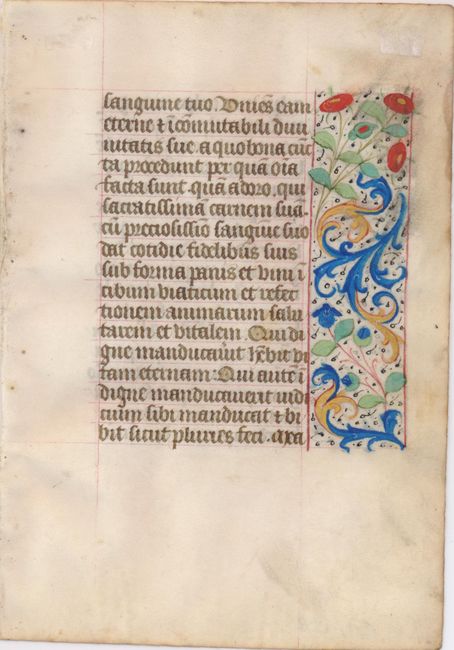 sanguine tuo. Unies eam
eterne & īcōmutabili diui
initatis sue. a quo bona cūc
ta procedunt per quā oīa
facta sunt. quā adoro. qui
sacratissimā carnem suā.
cū preciosissīo sangue suo
dat cotidie fidelibus suis
sub forma panis et vini ī
cibum viaticum et refec
tionem animarum salu
tarem et vitalem Qui di
gne manducauīt hēbit vi
tam eternam. Qui autē ī
digne manducauerit iudi
cium sibi manducat & bi
bit sicut pluries feci.